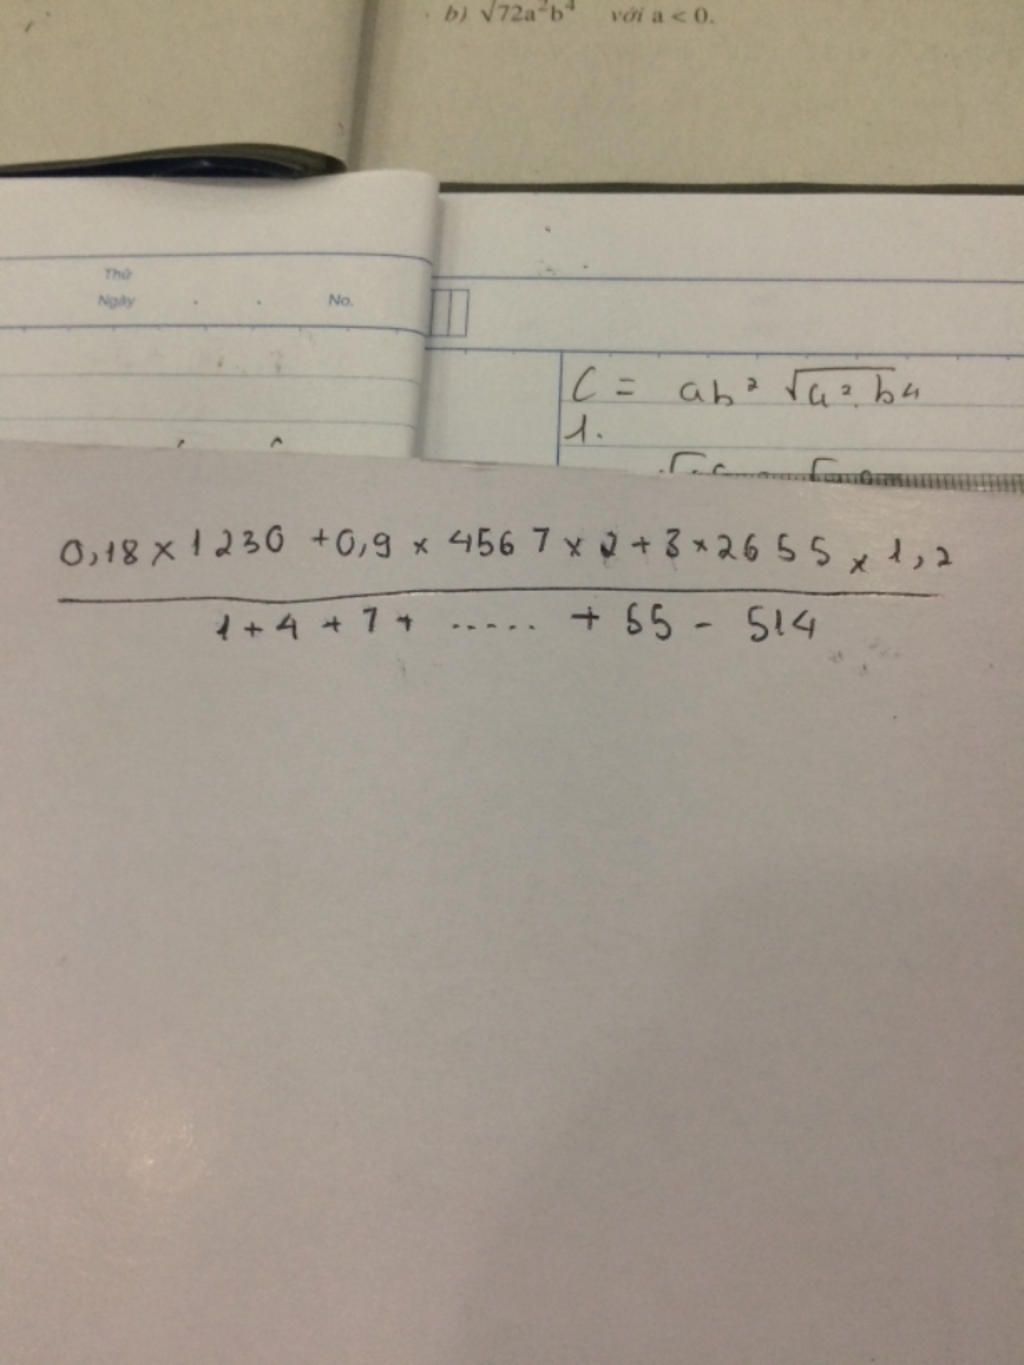 b) √72a²b⁴ với a < 0.
Thứ
Ngày . . No.
C = ab² √a².b⁴
1.
0,18 × 1230 + 0,9 × 4567 × 2 + 3 × 2655 × 1,2
1 + 4 + 7 + ...... + 55 - 514